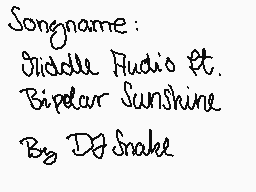 Songname:
Middle Audio ft.
Bipolar Sunshine
By DJ Snake